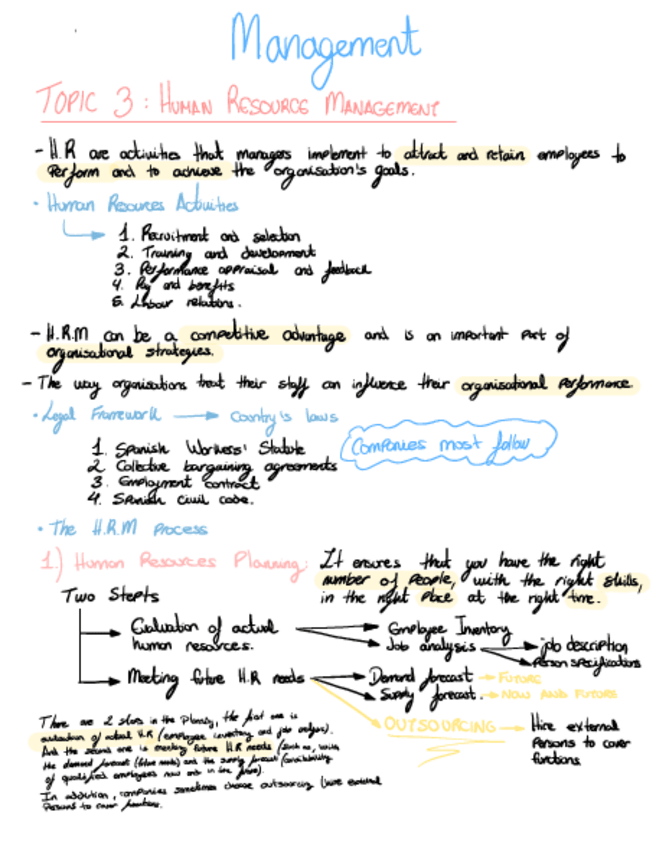 Management
TOPIC 3: HUMAN RESOURCE MANAGEMENT
- H.R are activities that managers implement to attract and retain employees to
perform and to achieve the organisation's goals.
• Human Resources Activities
1. Recruitment and selection
2. Training and development
3. Performance appraisal and feedback
4. Pay and benefits
5. Labour relations.
- H.R.M can be a competitive advantage and is an important part of
organisational strategies.
- The way organisations treat their staff can influence their organisational performance
• Legal Framework → Country's laws
1. Spanish Workers' Statute
2. Collective bargaining agreements
3. Employment contract
4. Spanish civil code.
Companies most follow
• The H.R.M Process
1.) Human Resources Planning: It ensures that you have the right
number of people, with the right skills,
in the right place at the right time.
Two Stepts
→ Evaluation of actual
human resources.
→ Employee Inventory
→ Job analysis → job description
→ Person specifications
→ Meeting future H.R needs → Demand forecast → FUTURE
→ Supply forecast. → NOW AND FUTURE
→ OUTSOURCING → Hire external
persons to cover
functions
There are 2 steps in the planning, the first one is
evaluation of actual H.R (employee inventory and job analysis).
And the second one is meeting future H.R needs (such as,
the demand forecast (future needs) and the supply forecast (availability
of qualified employees now and in the future).
In addition, companies sometimes choose outsourcing (hire external
persons to cover functions.